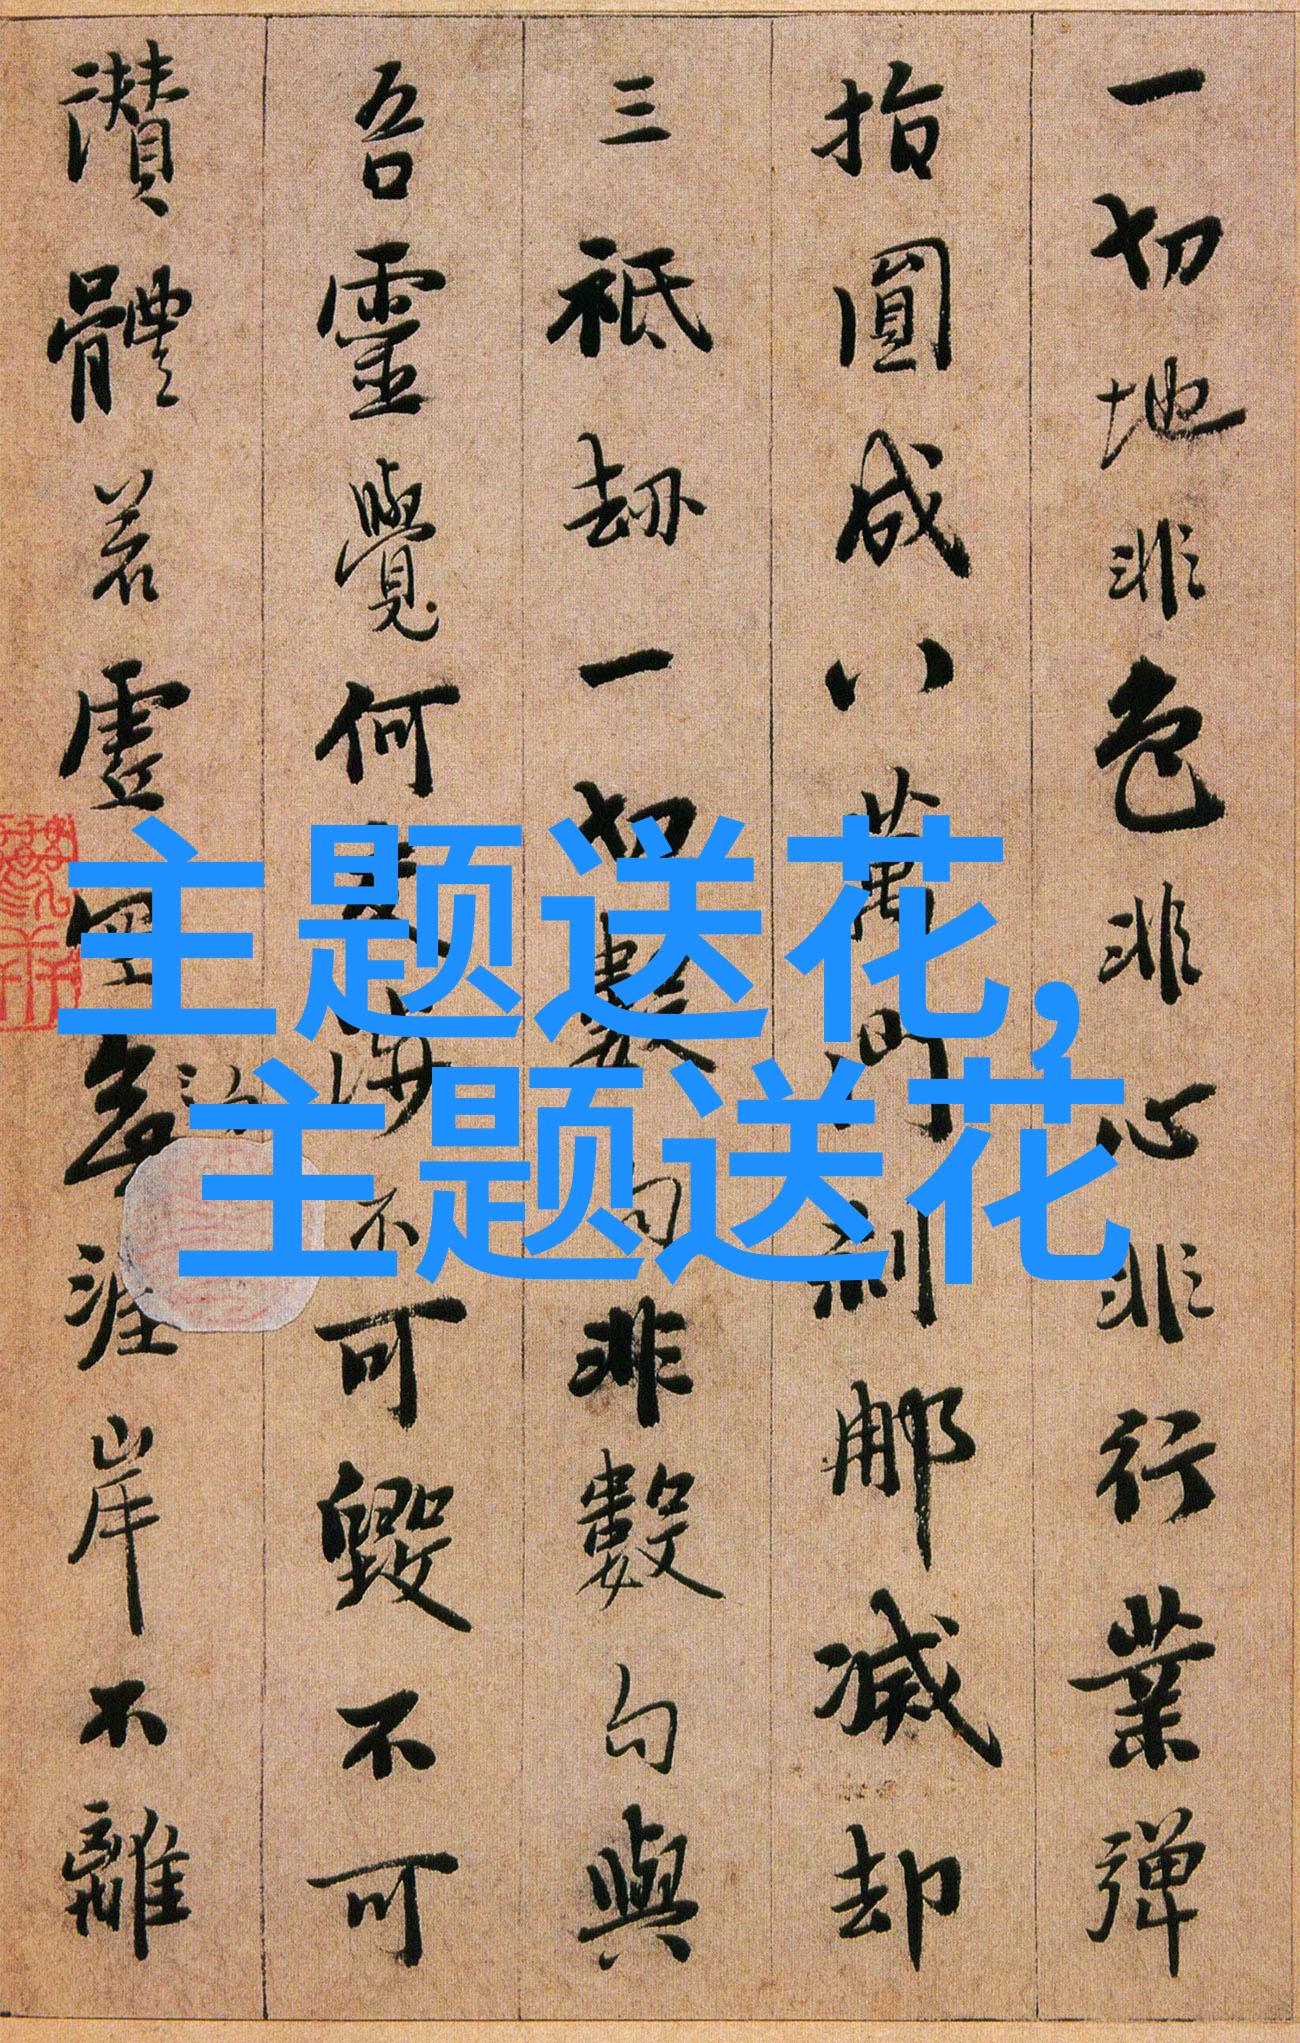 一切地非色非心非行業彈
指圓成八萬門刹那滅却
三祇劫一切數句非數句與
吾靈覺何不可毀不可
讚體若虛空涯岸不離
主题送花,
主题送花